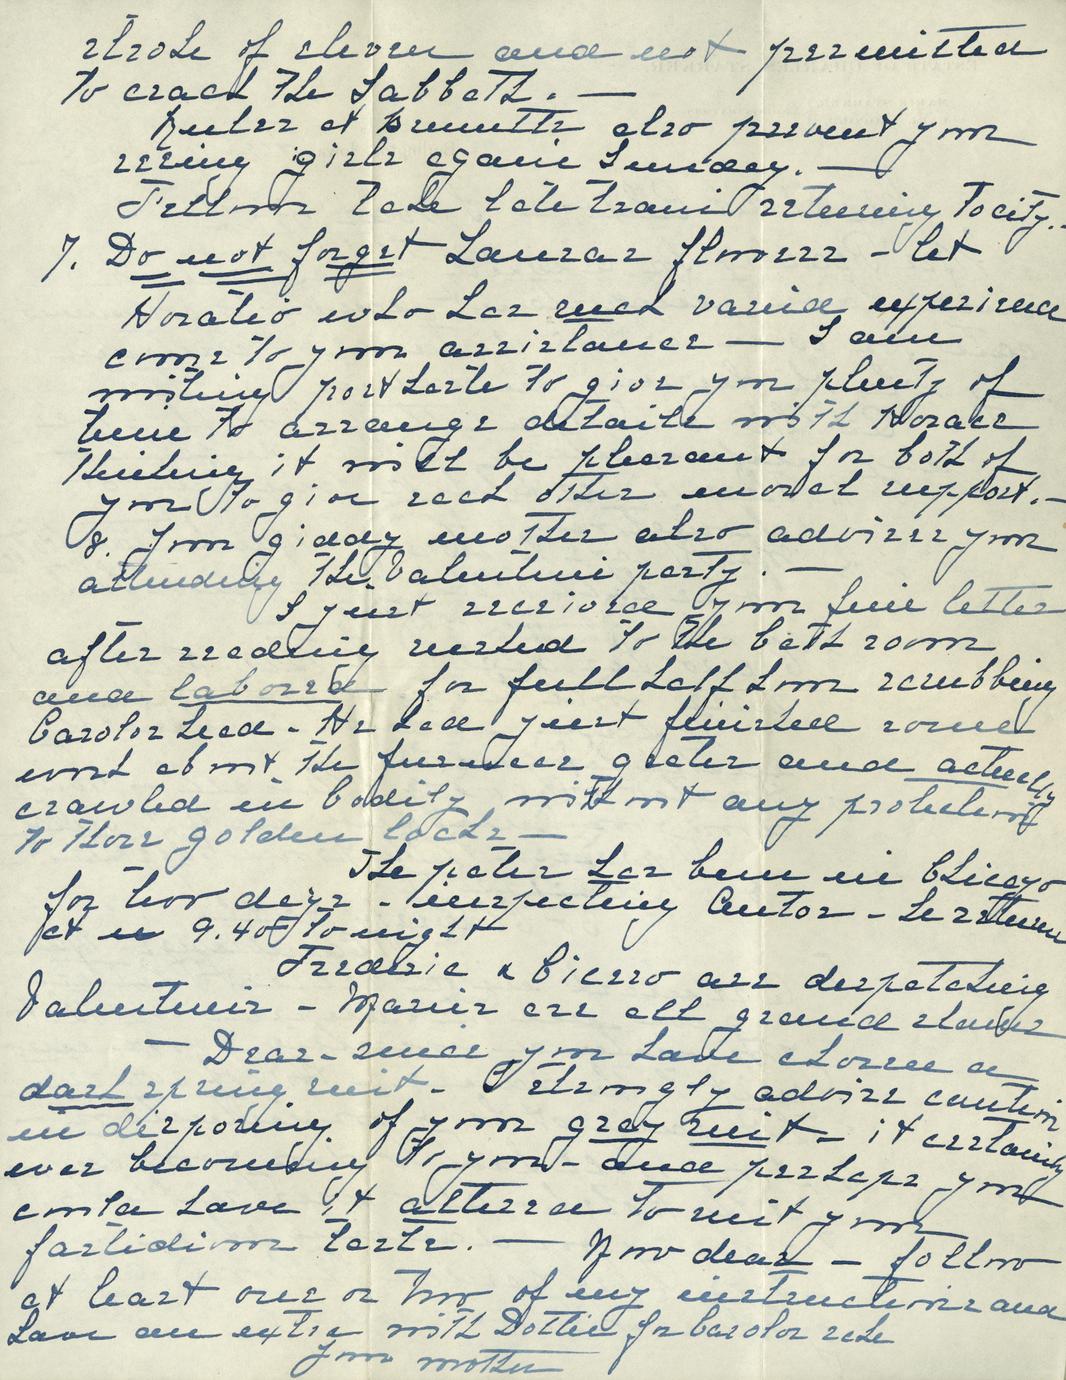 stroke of eleven and not permitted
to crack the Sabbath. —
Rules at Bennetts also prevent your
seeing girls again Sunday. —
Fellows take late train returning to city. -
7. Do not forget Lauras flowers - let
Horatio who has such varied experience
come to your assistance — I am
writing post haste to give you plenty of
time to arrange details with Horace
thinking it will be pleasant for both of
you to give each other moral support. -
8. Your giddy mother also advises your
attending the Valentine party. —
I just received your fine letter
after reading rushed to the bath room
and labored for full half hour scrubbing
Carolos head - He had just finished some
work about the furnace grater and actually
crawled in bodily without any protection
to those golden locks —
The pater has been in Chicago
for two days - inspecting Autos - he returns
at 9.40 to night
Frederic & Cicero are despatching
Valentines - Maria are all grand slams
— Dear - since you have chosen a
dark spring suit - I strongly advise caution
in disposing of your gray suit - it certainly
was becoming to you - and perhaps you
could have it altered to suit your
fastidious taste. — Now dear - follow
at least one or two of my instructions and
have an extra with Dottie for Carolos sake
Your mother